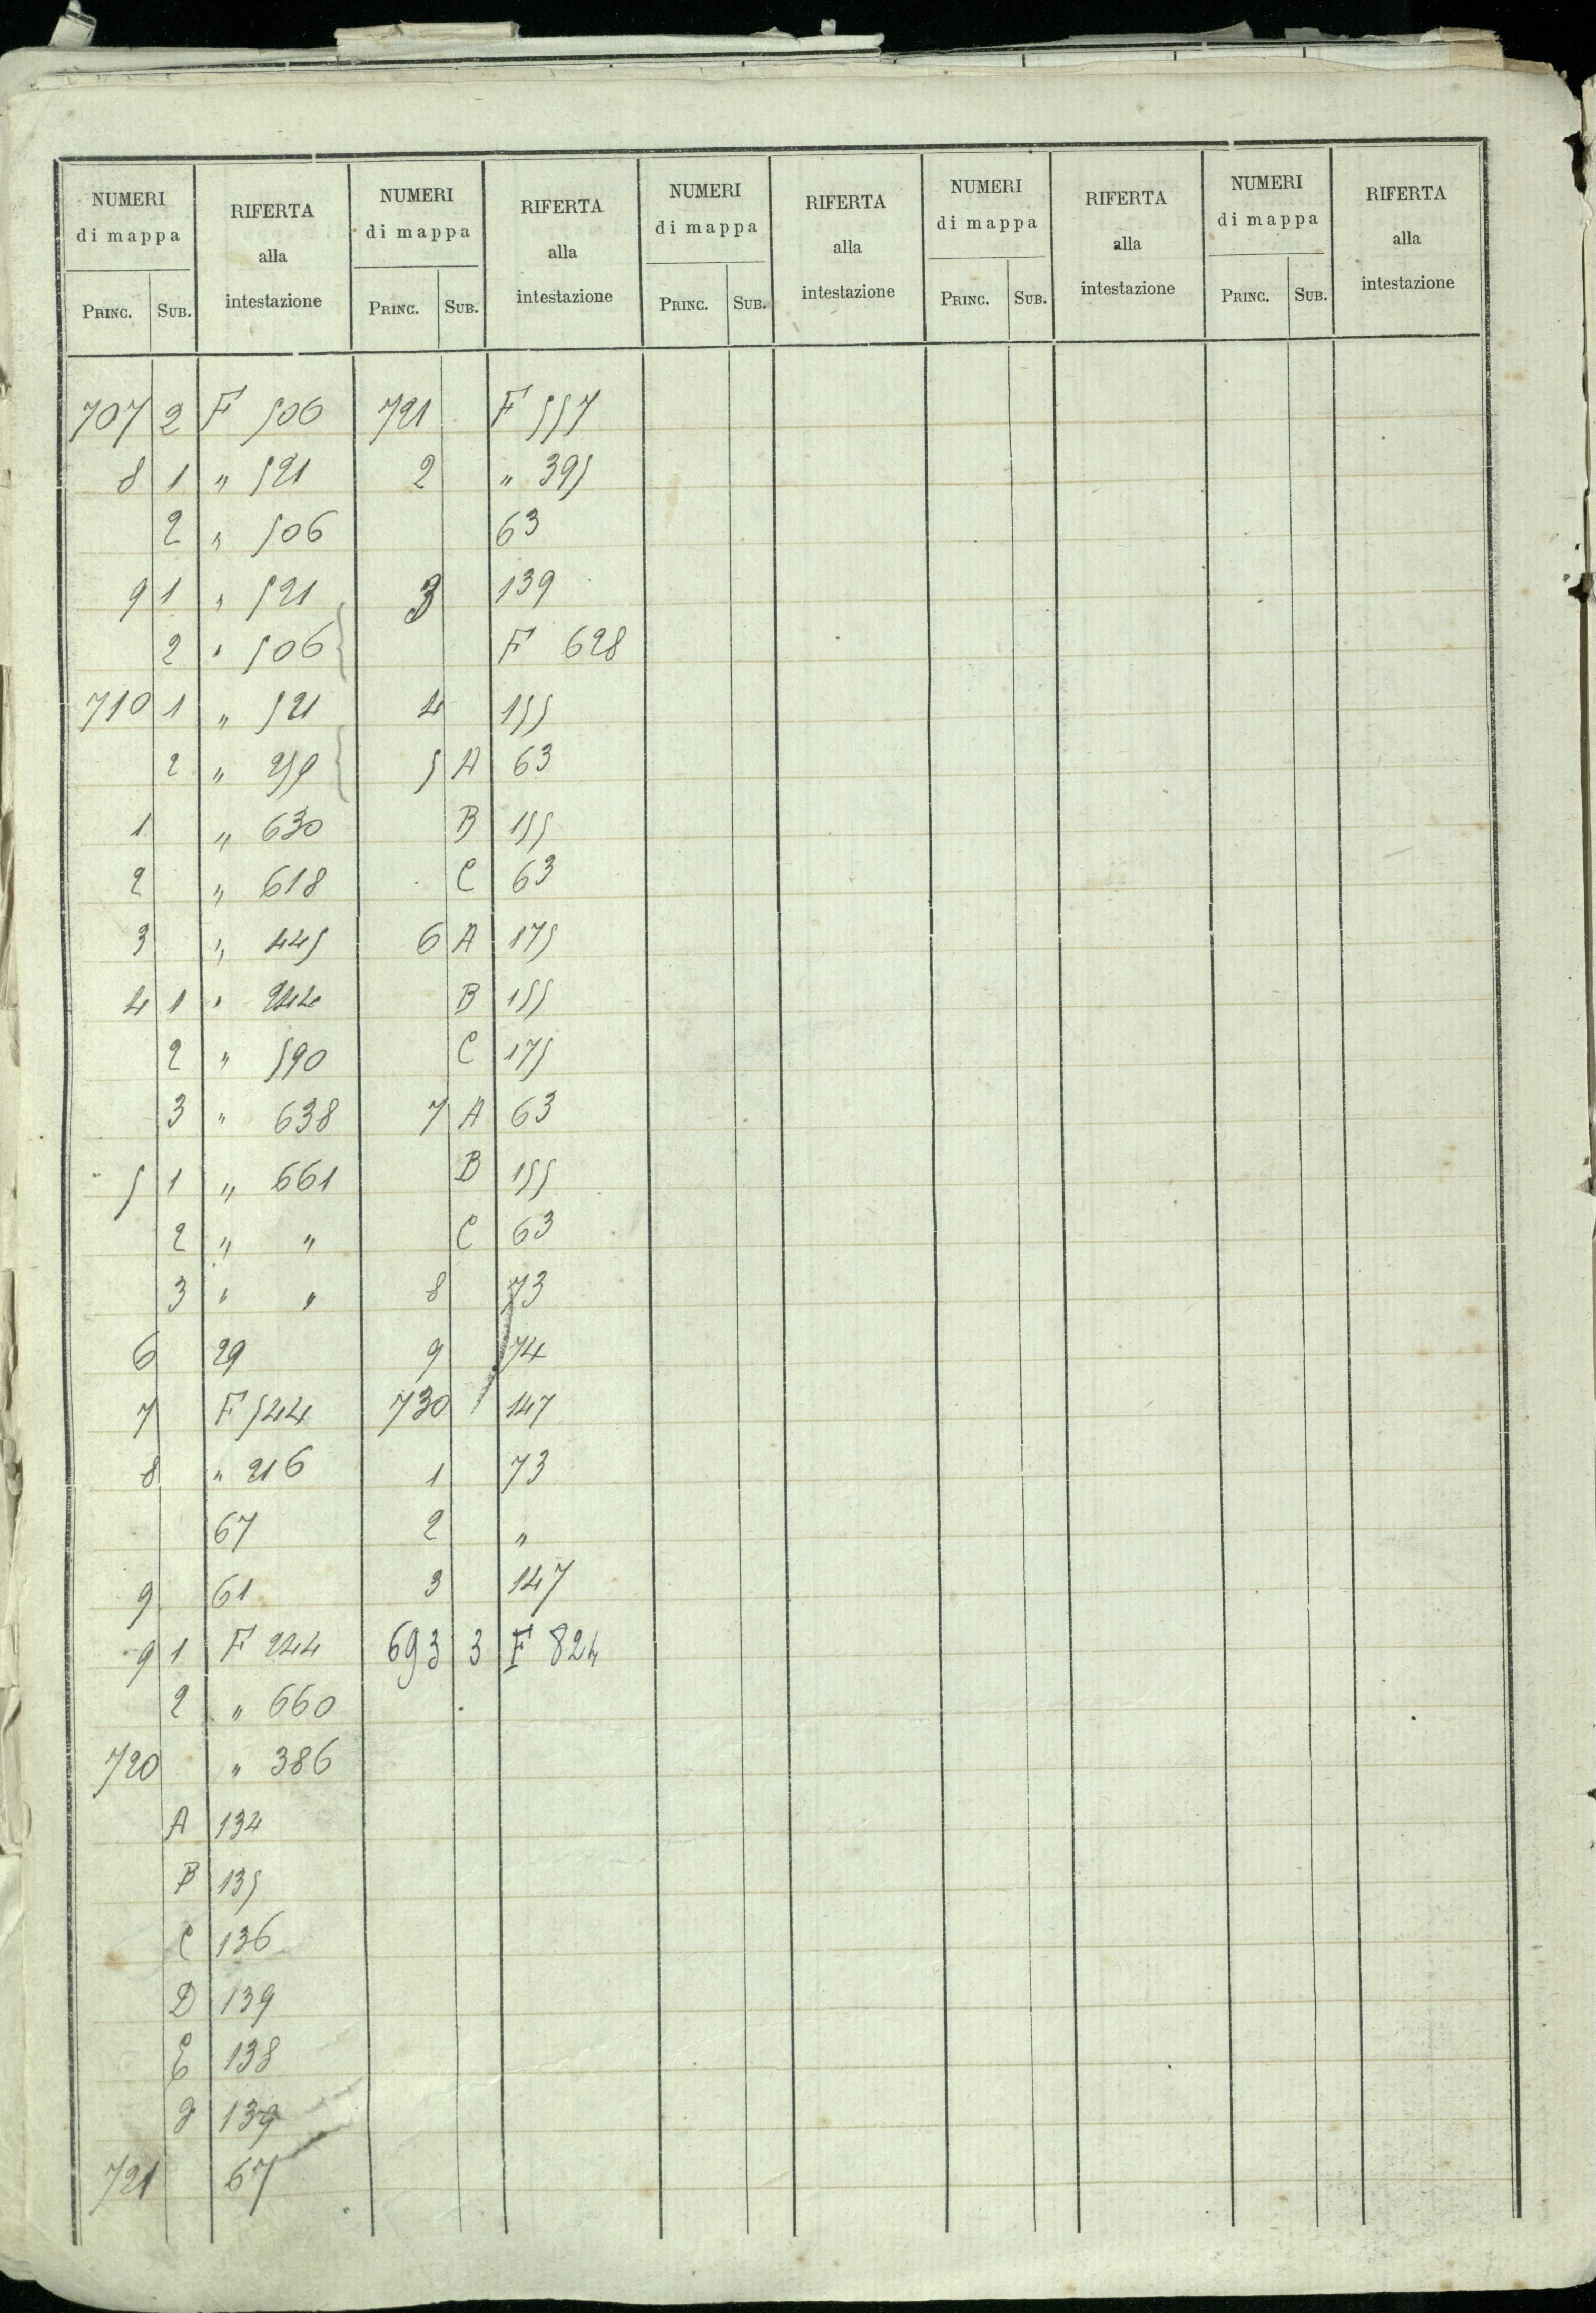 NUMERI di mappa | RIFERTA alla intestazione | NUMERI di mappa | RIFERTA alla intestazione | NUMERI di mappa | RIFERTA alla intestazione | NUMERI di mappa | RIFERTA alla intestazione | NUMERI di mappa | RIFERTA alla intestazione
PRINC. | SUB. | PRINC. | SUB. | PRINC. | SUB. | PRINC. | SUB. | PRINC. | SUB.
707 2 F 506
8 1 " 521
2 " 506
9 1 " 521
2 " 506
710 1 " 521
2 " 259
1 " 630
2 " 618
3 " 445
4 1 " 244
2 " 590
3 " 638
5 1 " 661
2 " "
3 " "
6 29
7 F 544
8 " 216
67
9 61
9 1 F 244
2 " 660
720 " 386
A 134
B 135
C 136
D 139
E 138
139
721 67
721 F 557
2 " 395
63
3 139
F 628
4 155
5 A 63
B 155
C 63
6 A 175
B 155
C 175
7 A 63
B 155
C 63
8 73
9 74
730 147
1 73
2 "
3 147
693 3 F 824